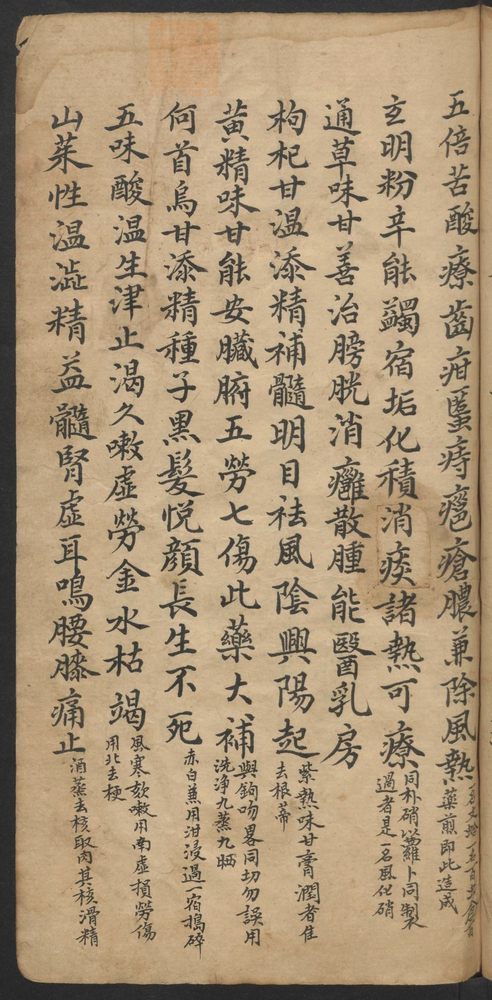 五倍苦酸療齒疳䘌痔瘡瘡膿兼除風熱
藥煎即此造成
玄明粉辛能蠲宿垢化積消痰諸熱可療
同朴硝以蘿卜同製
過者是一名風化硝
通草味甘善治膀胱消癰散腫能醫乳房
枸杞甘溫添精補髓明目祛風陰興陽起
紫熟味甘膏潤者佳
去根蒂
黃精味甘能安臟腑五勞七傷此藥大補
與鉤吻畧同切勿誤用
洗淨九蒸九晒
何首烏甘添精種子黑髮悅顏長生不死
赤白兼用泔浸過一宿搗碎
五味酸溫生津止渴久嗽虛勞金水枯竭
風寒欬嗽用南虛損勞傷
用北去梗
山茱性溫澁精益髓腎虛耳鳴腰膝痛止
酒蒸去核取肉其核滑精